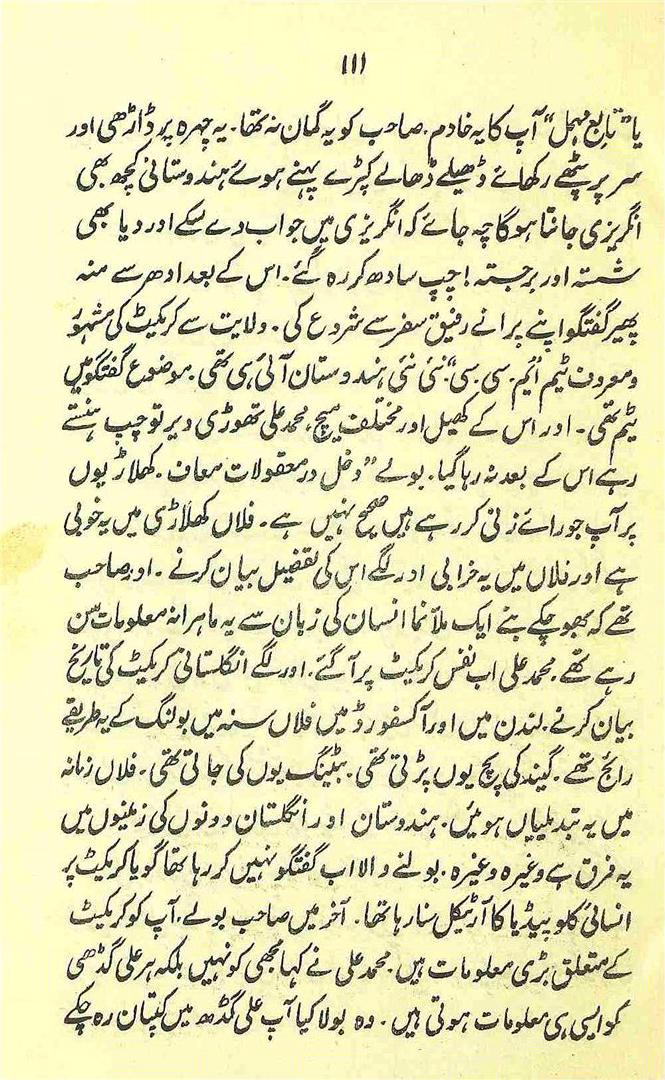 ۱۱۱
یا "تابع مہمل" آپ کا یہ خادم. صاحب کو یہ گمان نہ تھا۔ یہ چہرہ پر ڈاڑھی اور
سر پر پٹھے رکھائے ڈھیلے ڈھالے کپڑے پہنے ہوئے ہندوستانی کچھ بھی
انگریزی جانتا ہوگا چہ جائے کہ انگریزی میں جواب دے سکے اور دیا بھی
شستہ اور برجستہ! چپ سادھ کر رہ گئے۔ اس کے بعد ادھر سے منہ
پھیر گفتگو اپنے پرانے رفیق سفر سے شروع کی۔ ولایت سے کرکیٹ کی مشہور
ومعروف ٹیم "ایم. سی. سی" نئی نئی ہندوستان آئی ہی تھی. موضوع گفتگو میں
ٹیم تھی۔ اور اس کے کھیل اور مختلف میچ، محمد علی تھوڑی دیر تو چپ ہنستے
رہے اس کے بعد نہ رہا گیا. بولے "دخل در معقولات معاف. کھلاڑیوں
پر آپ جو رائے زنی کر رہے ہیں صحیح نہیں ہے۔ فلاں کھلاڑی میں یہ خوبی
ہے اور فلاں میں یہ خرابی اور لگے اس کی تفصیل بیان کرنے۔ اور صاحب
تھے کہ بھوچکے بنے ایک ملا نما انسان کی زبان سے یہ ماہرانہ معلومات سن
رہے تھے. محمد علی اب نفس کرکیٹ پر آگئے. اور لگے انگلستانی کرکیٹ کی تاریخ
بیان کرنے. لندن میں اور آکسفورڈ میں فلاں سنہ میں بولنگ کے یہ طریقے
رائج تھے۔ گیند کی پچ یوں پڑتی تھی. بیٹینگ یوں کی جاتی تھی۔ فلاں زمانہ
میں یہ تبدیلیاں ہوئیں. ہندوستان اور انگلستان دونوں کی زمینوں میں
یہ فرق ہے وغیرہ وغیرہ. بولنے والا اب گفتگو نہیں کر رہا تھا گویا کرکیٹ پر
انسائی کلوپیڈیا کا آرٹیکل سنا رہا تھا۔ آخر میں صاحب بولے. آپ کو کرکیٹ
کے متعلق بڑی معلومات ہیں. محمد علی نے کہا مجھی کو نہیں بلکہ ہر علی گڈھی
کو ایسی ہی معلومات ہوتی ہیں۔ وہ بولا کیا آپ علی گڈھ میں کپتان رہ چکے